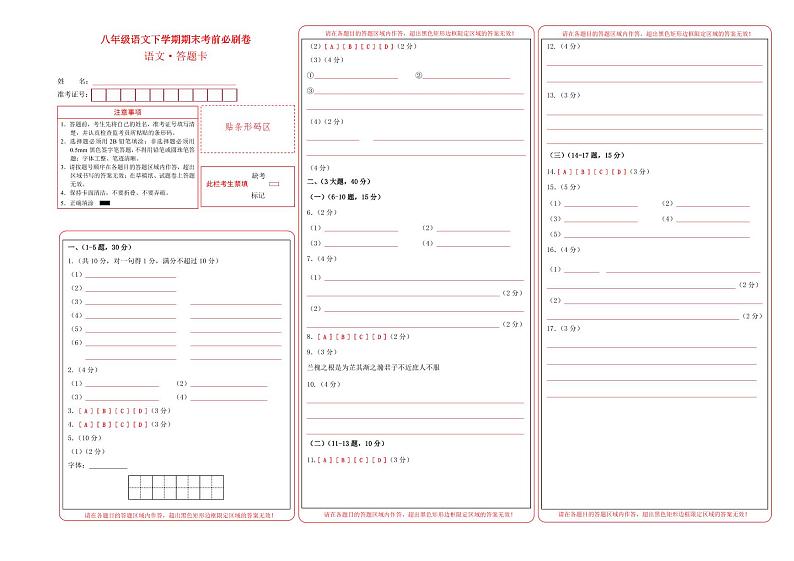 八年级语文下学期期末考前必刷卷
语文·答题卡
姓  名：
准考证号：
注意事项
1．答题前，考生先将自己的姓名，准考证号填写清
楚，并认真检查监考员所粘贴的条形码。
2．选择题必须用 2B 铅笔填涂；非选择题必须用
0.5mm 黑色签字笔答题，不得用铅笔或圆珠笔答
题；字体工整、笔迹清晰。
3．请按题号顺序在各题目的答题区域内作答，超出
区域书写的答案无效；在草稿纸、试题卷上答题
无效。
4．保持卡面清洁，不要折叠、不要弄破。
5．正确填涂
贴条形码区
此栏考生禁填
缺考
标记
一、（1-5题，30 分）
1.（共 10 分，对一句得 1 分，满分不超过 10 分）
（1）
（2）
（3）
（4）
（5）
（6）
2.（4 分）
（1） （2）
（3） （4）
3.[ A ] [ B ] [ C ] [ D ]（3 分）
4.[ A ] [ B ] [ C ] [ D ]（3 分）
5.（10 分）
（1）（2 分）
字体：
请在各题目的答题区域内作答，超出黑色矩形边框限定区域的答案无效！
请在各题目的答题区域内作答，超出黑色矩形边框限定区域的答案无效！
（2）[ A ] [ B ] [ C ] [ D ]（2 分）
（3）（4 分）
① ②
③
（4）（2 分）
（4 分）
二、（3 大题，40 分）
（一）（6-10 题，15 分）
6.（2 分）
（1） （2）
（3） （4）
7.（4 分）
（1）
（2 分）
（2）
（2 分）
8.[ A ] [ B ] [ C ] [ D ]（2 分）
9.（3 分）
兰槐之根是为芷其渐之滫君子不近庶人不服
10.（4 分）
（二）（11-13 题，10 分）
11.[ A ] [ B ] [ C ] [ D ]（3 分）
请在各题目的答题区域内作答，超出黑色矩形边框限定区域的答案无效！
请在各题目的答题区域内作答，超出黑色矩形边框限定区域的答案无效！
12.（4 分）
13.（3 分）
（三）（14-17 题，15 分）
14.[ A ] [ B ] [ C ] [ D ]（3 分）
15.（5 分）
（1） （2）
（3） （4）
（5）
16.（4 分）
（1）
（2 分）
（2）
（2 分）
17.（3 分）
请在各题目的答题区域内作答，超出黑色矩形边框限定区域的答案无效！